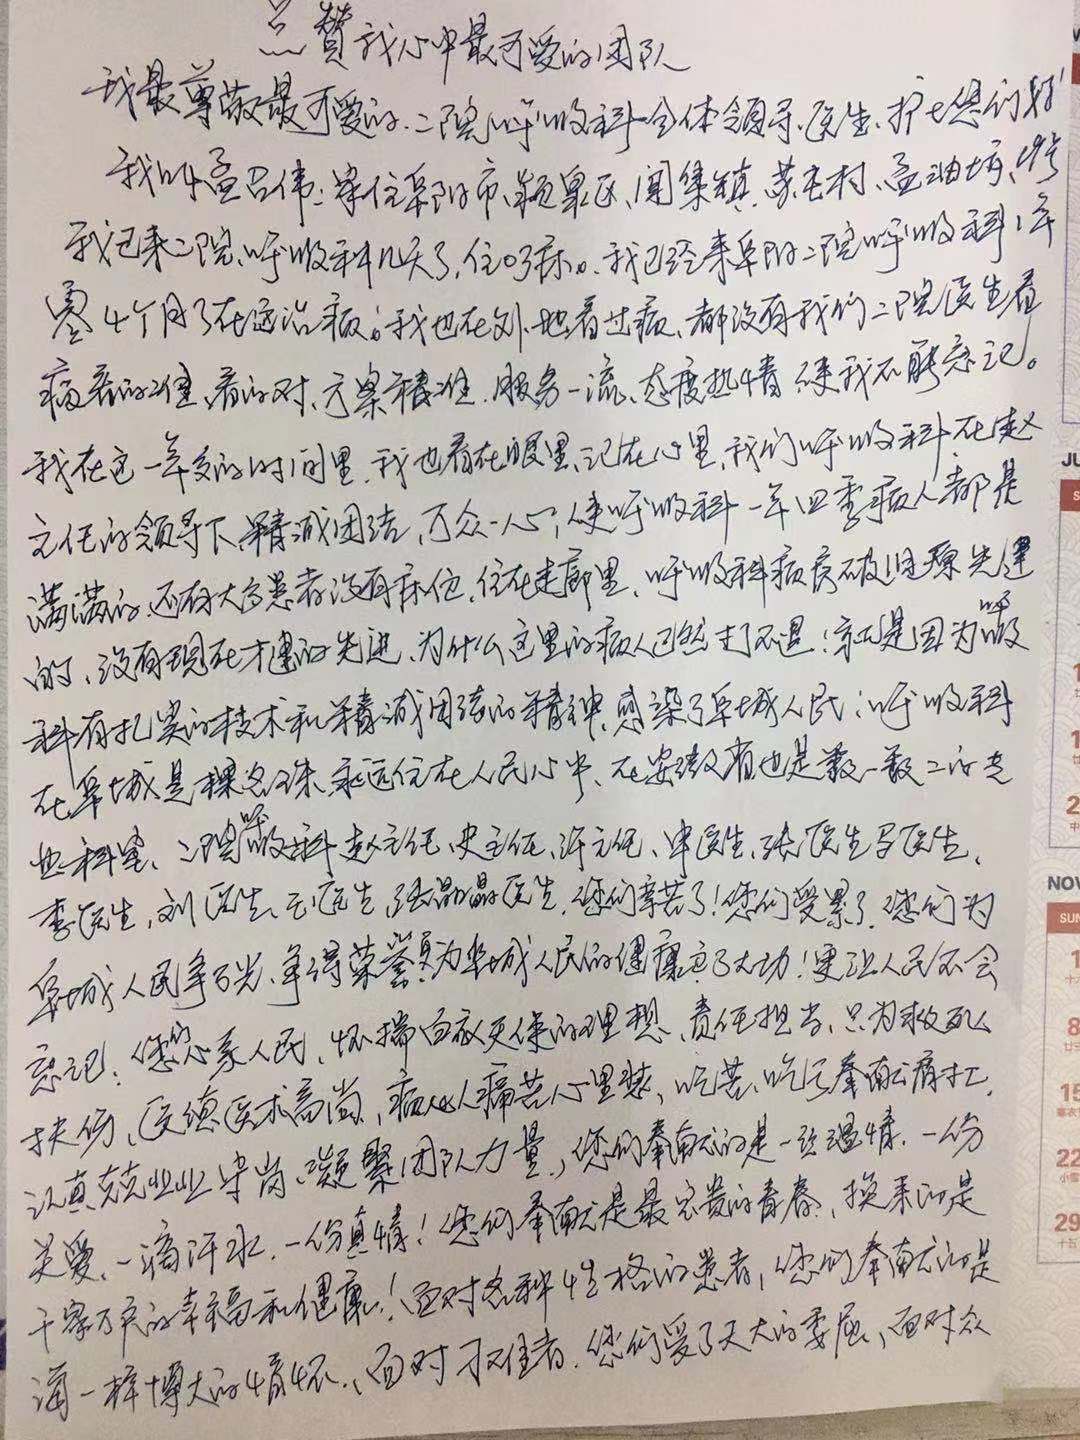 点赞我心中最可爱的团队
我最尊敬最可爱的、二院呼吸科全体领导、医生、护士您们好!
我叫孟召伟:家住阜阳市、颍泉区、闻集镇、苏屯村、孟油坊、19号
我已来二院、呼吸科几天了,住03床。我已经来阜阳二院呼吸科1年
零4个月了在这治病;我也在外地看过病、都没有我们二院医生看
病看的准、看的对、方案精准、服务一流、态度热情、使我不能忘记。
我在这一年多的时间里、我也看在眼里、记在心里、我们呼吸科、在赵
主任的领导下、精减团结,万众一心,使呼吸科一年四季病人都是
满满的、还有大多患者没有床位、住在走廊里、呼吸科病房破旧原先建
的、没有现在才建的先进、为什么这里的病人已然打不退!就是因为呼吸
科有扎实的技术和精减团结的精神、感染了阜城人民;呼吸科
在阜城是棵名珠、永远住在人民心中、在安徽省也是数一数二的
科室、二院呼吸科赵主任、史主任、许主任、申医生、张医生马医生、
李医生,刘医生、王医生,张晶晶医生、您们辛苦了!您们受累了、您们为
阜城人民争了光、争得荣誉、为阜城人民的健康立了大功!更让人民不会
忘记;您的心系人民,怀揣白衣天使的理想、责任担当、只为救死
扶伤、医德医术高尚、病人痛苦心里装,吃苦、吃亏奉献
认真兢业业守岗、凝聚团队力量,您们奉献的是一班温情、一份
关爱、一滴汗水、一份真情!您们奉献是最宝贵的青春、换来的是
千家万户的幸福和健康!面对各种性格的患者,您们奉献的是
海一样博大的情怀、面对刁难者、您们受了天大的委屈、面对众